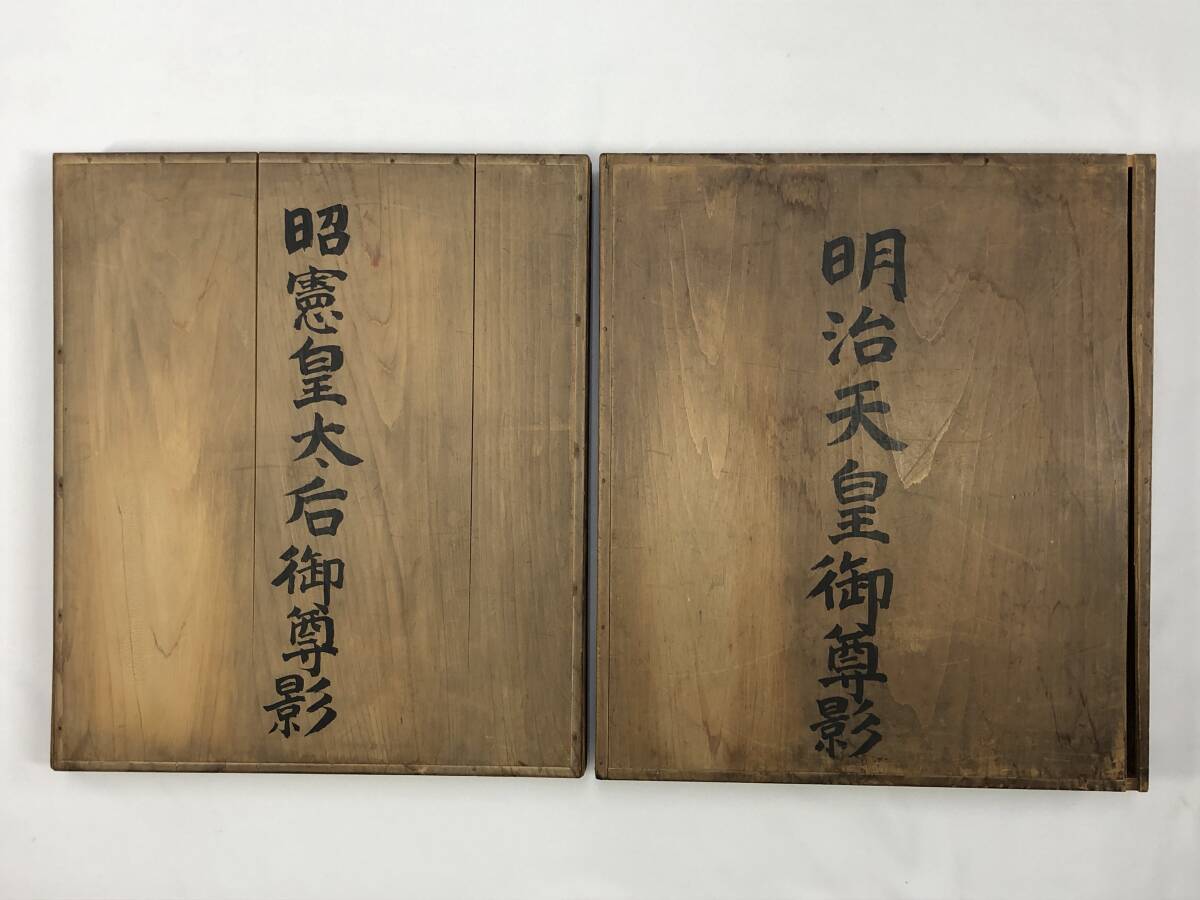 明治天皇御尊影
昭憲皇太后御尊影